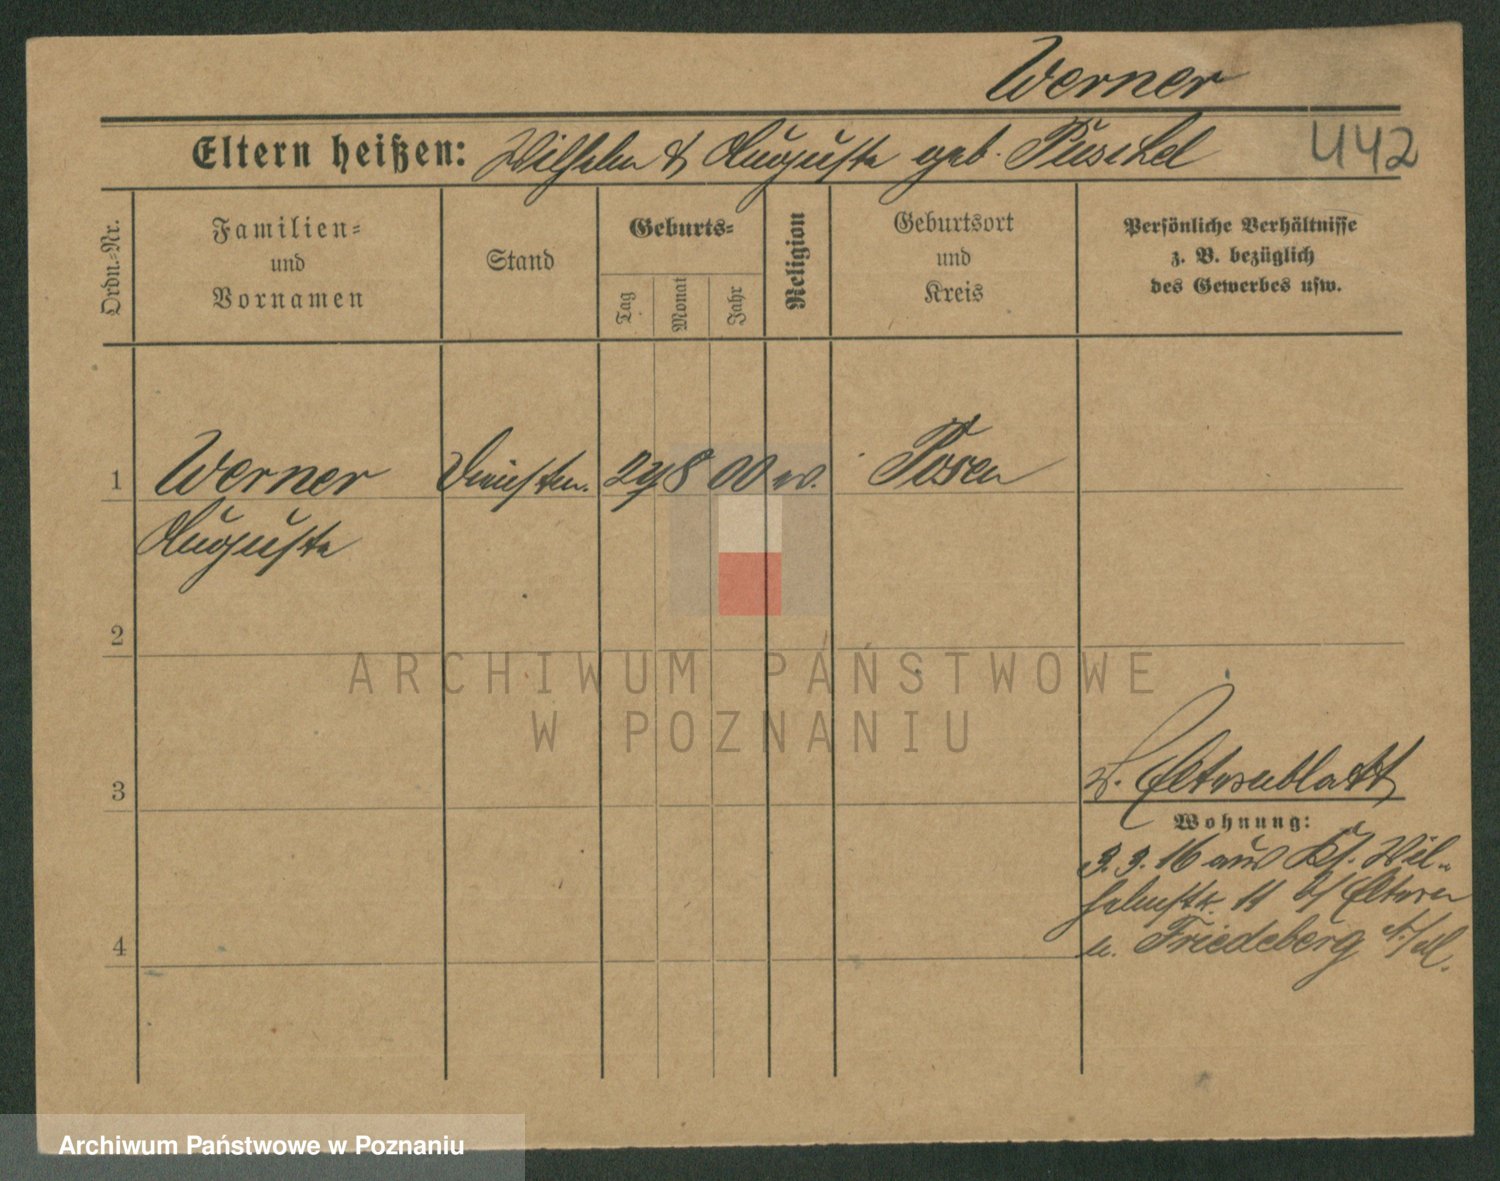 Werner
Eltern heißen: Wilhelm & Auguste geb. Püschel
442
Ordn.-Nr.
Familien-
und
Vornamen
Stand
Geburts-
Tag
Monat
Jahr
Religion
Geburtsort
und
Kreis
Persönliche Verhältnisse
z. B. bezüglich
des Gewerbes usw.
1 Werner 8 00 ev. Posen
Auguste
2
ARCHIWUM PAŃSTWOWE
W POZNANIU
3
s. Elternblatt
Wohnung:
3. 3. 16 aus Kl. Wil-
helmstr. 11 b/ Eltern
n. Friedeberg N/M.
4
Archiwum Państwowe w Poznaniu